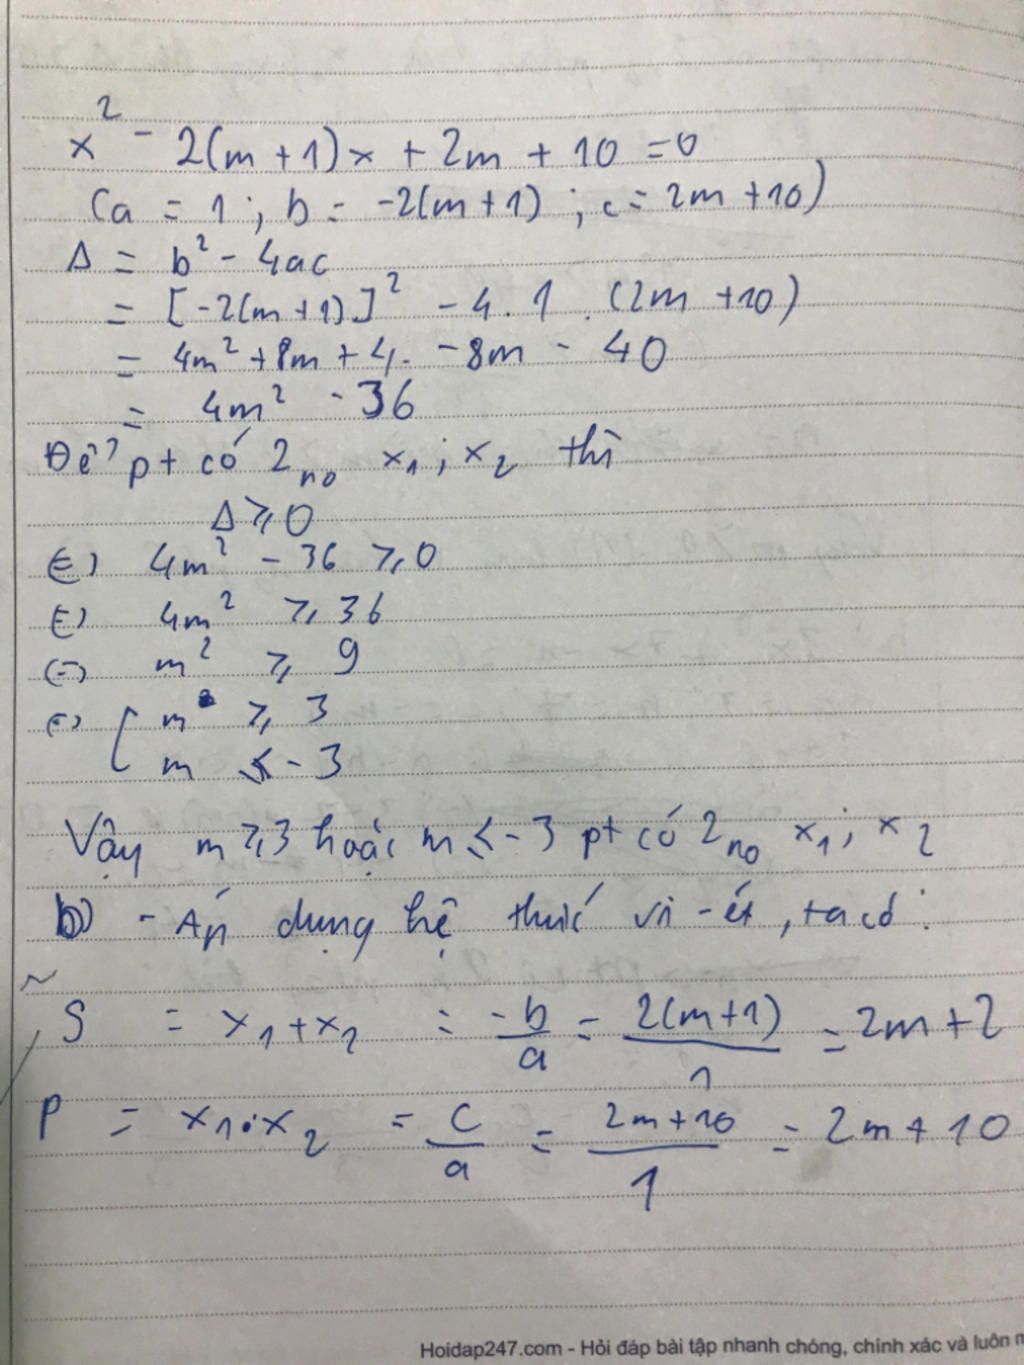 x² - 2(m+1)x + 2m + 10 = 0
(a = 1 ; b = -2(m+1) ; c = 2m + 10)
Δ = b² - 4ac
= [-2(m+1)]² - 4.1.(2m + 10)
= 4m² + 8m + 4 - 8m - 40
= 4m² - 36
Để pt có 2 no x₁ ; x₂ thì
Δ ⩾ 0
(=) 4m² - 36 ⩾ 0
(=) 4m² ⩾ 36
(=) m² ⩾ 9
(=) [ m ⩾ 3
m ⩽ -3
Vậy m ⩾ 3 hoặc m ⩽ -3 pt có 2 no x₁ ; x₂
b) - Áp dụng hệ thức vi-ét, ta có :
S = x₁ + x₂ = -b/a = 2(m+1)/1 = 2m + 2
P = x₁.x₂ = c/a = 2m+10/1 = 2m + 10
Hoidap247.com - Hỏi đáp bài tập nhanh chóng, chính xác và luôn